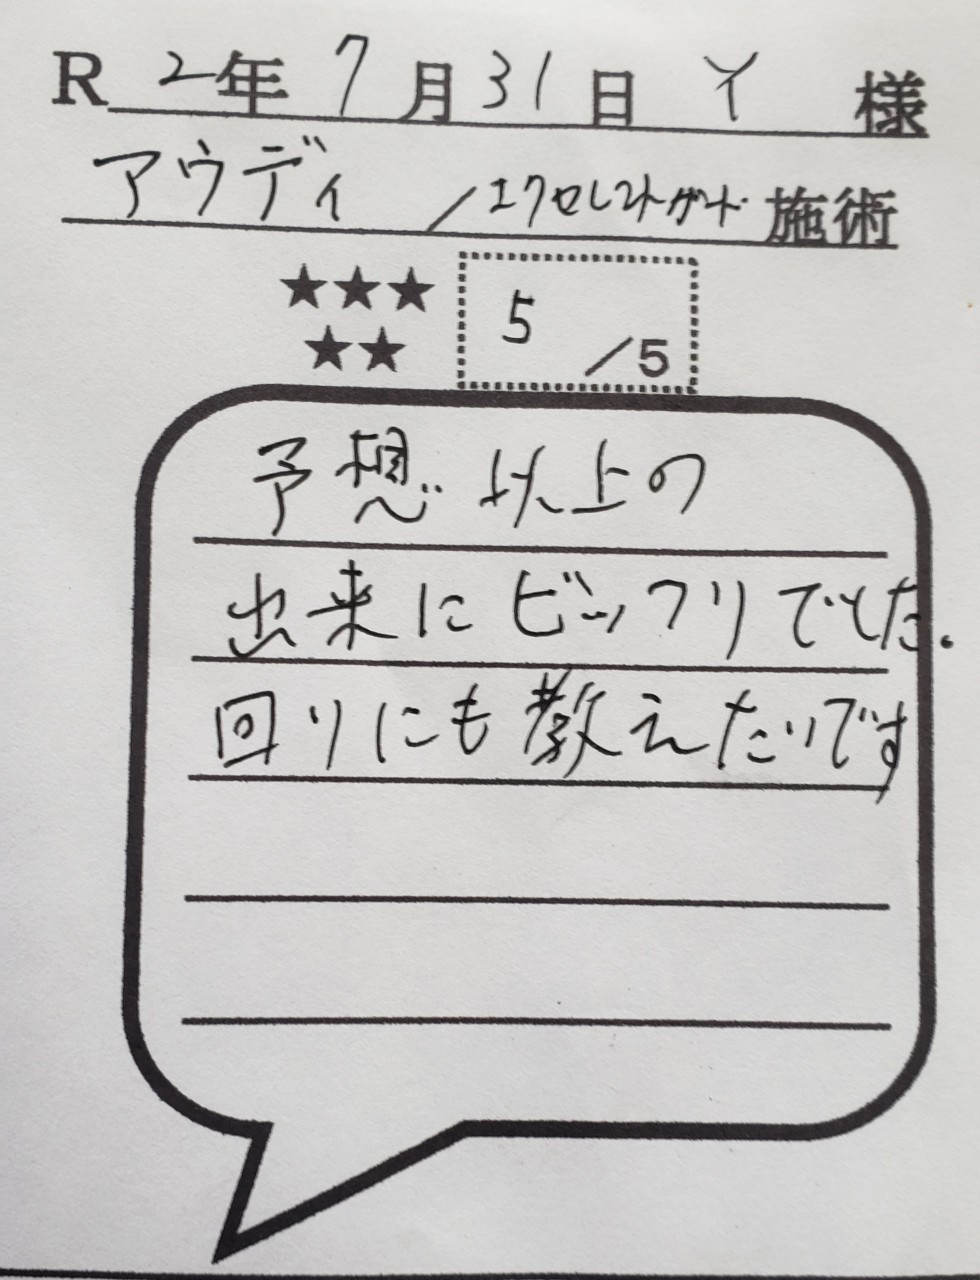 R 2年7月31日 Y 様
アウディ /エクセレントガード 施術
★★★
★★
5 /5
予想以上の
出来にビックリでした.
回りにも教えたいです